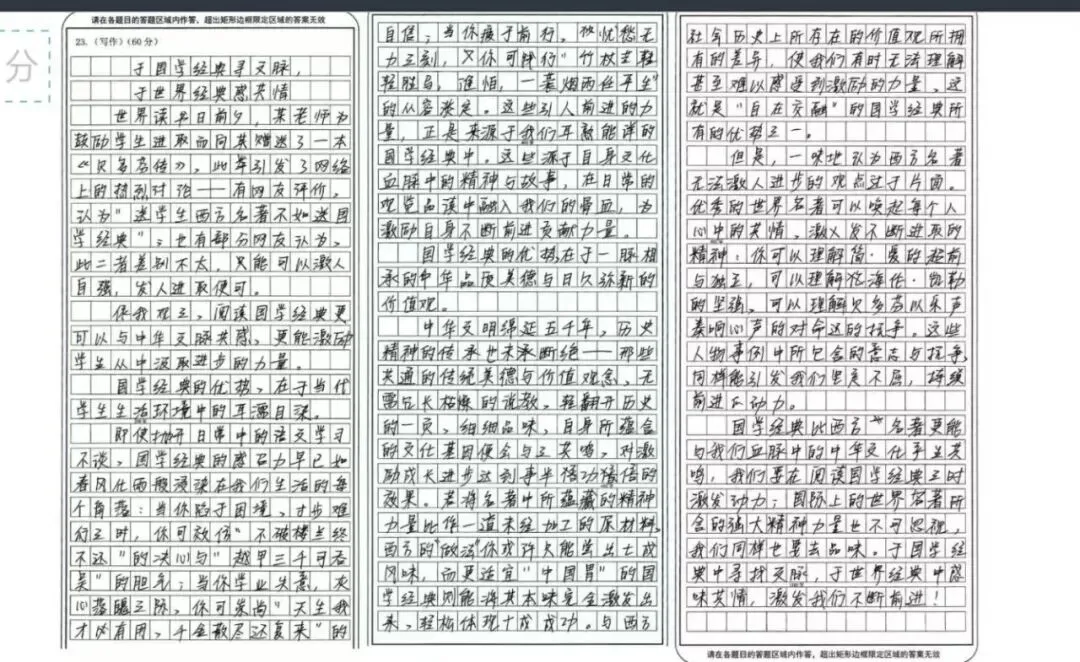 分
请在各题目的答题区域内作答，超出矩形边框限定区域的答案无效
23.（写作）(60分)
于国学经典寻文脉，
于世界经典感共情
世界读书日前夕，某老师为
鼓励学生进取而向其赠送了一本
《贝多芬传》，此举引发了网络
上的热烈讨论——有网友评价，
认为"送学生西方名著不如送国
学经典"；也有部分网友认为，
此二者差别不大，只能可以激人
自强，发人进取便可。
依我观之，阅读国学经典更
可以与中华文脉共感，更能激励
学生从中汲取进步的力量。
国学经典的优势，在于当代
学生生活环境中的耳濡目染。
即使抛开日常中的语文学习
不谈，国学经典的感召力早已如
春风化雨般浸染在我们生活的每
个角落：当你陷于困境，寸步难
行之时，你可效仿"不破楼兰终
不还"的决心与"越甲三千可吞
吴"的胆气；当你学业失意，灰
心落魄之际，你可崇尚"天生我
才必有用，千金散尽还复来"的
自信；当你疲于前行，
力之刻，又你可践行"竹杖芒鞋
轻胜马，谁怕，一蓑烟雨任平生"
的从容淡定。这些引人前进的力
量，正是来源于我们耳熟能详的
国学经典中。这些源于自身文化
血脉中的精神与故事，在日常的
观览品读中融入我们的骨血，为
激励自身不断前进贡献力量。
国学经典的优势在于一脉相
承的中华品质美德与日久弥新的
价值观。
中华文明绵延五千年，历史
精神的传承也未承断绝——那些
共通的传统美德与价值观念，无
需冗长枯燥的说教，轻翻开历史
的一页，细细品味，自身所蕴含
的文化基因便会与之共鸣，对激
励成长进步达到事半功倍的
效果。若将名著中所蕴藏的精神
力量比作一道未经加工的原材料，
西方的"做法"你或许只能尝出七成
风味，而更适宜"中国胃"的国
学经典则能将其本味完全激发出
来，轻松体现十成成功。与西方
社会历史上所存在的价值观所拥
有的差异，使我们有时无法理解
甚至难以感受到激励的力量，这
就是"自在交融"的国学经典所
有的优势之一。
但是，一味地认为西方名著
无法激人进步的观点过于片面。
优秀的世界名著可以唤起每个人
心中的共情，激人发不断进取的
精神：你可以理解简·爱的超前
与独立，可以理解海伦·凯勒
的坚强，可以理解贝多芬以乐声
奏响心声的对命运的抗争。这些
人物事例中所包含的意志与抗争，
同样能引发我们坚毅不屈，持续
前进的动力。
国学经典比西方名著更能
与我们血脉中的中华文化产生共
鸣，我们要在阅读国学经典之时
激发动力；国际上的世界名著所
含的强大精神力量也不可忽视，
我们同样也要去品味。于国学经
典中寻找文脉，于世界经典中感
味共情，激发我们不断前进！
请在各题目的答题区域内作答，超出矩形边框限定区域的答案无效